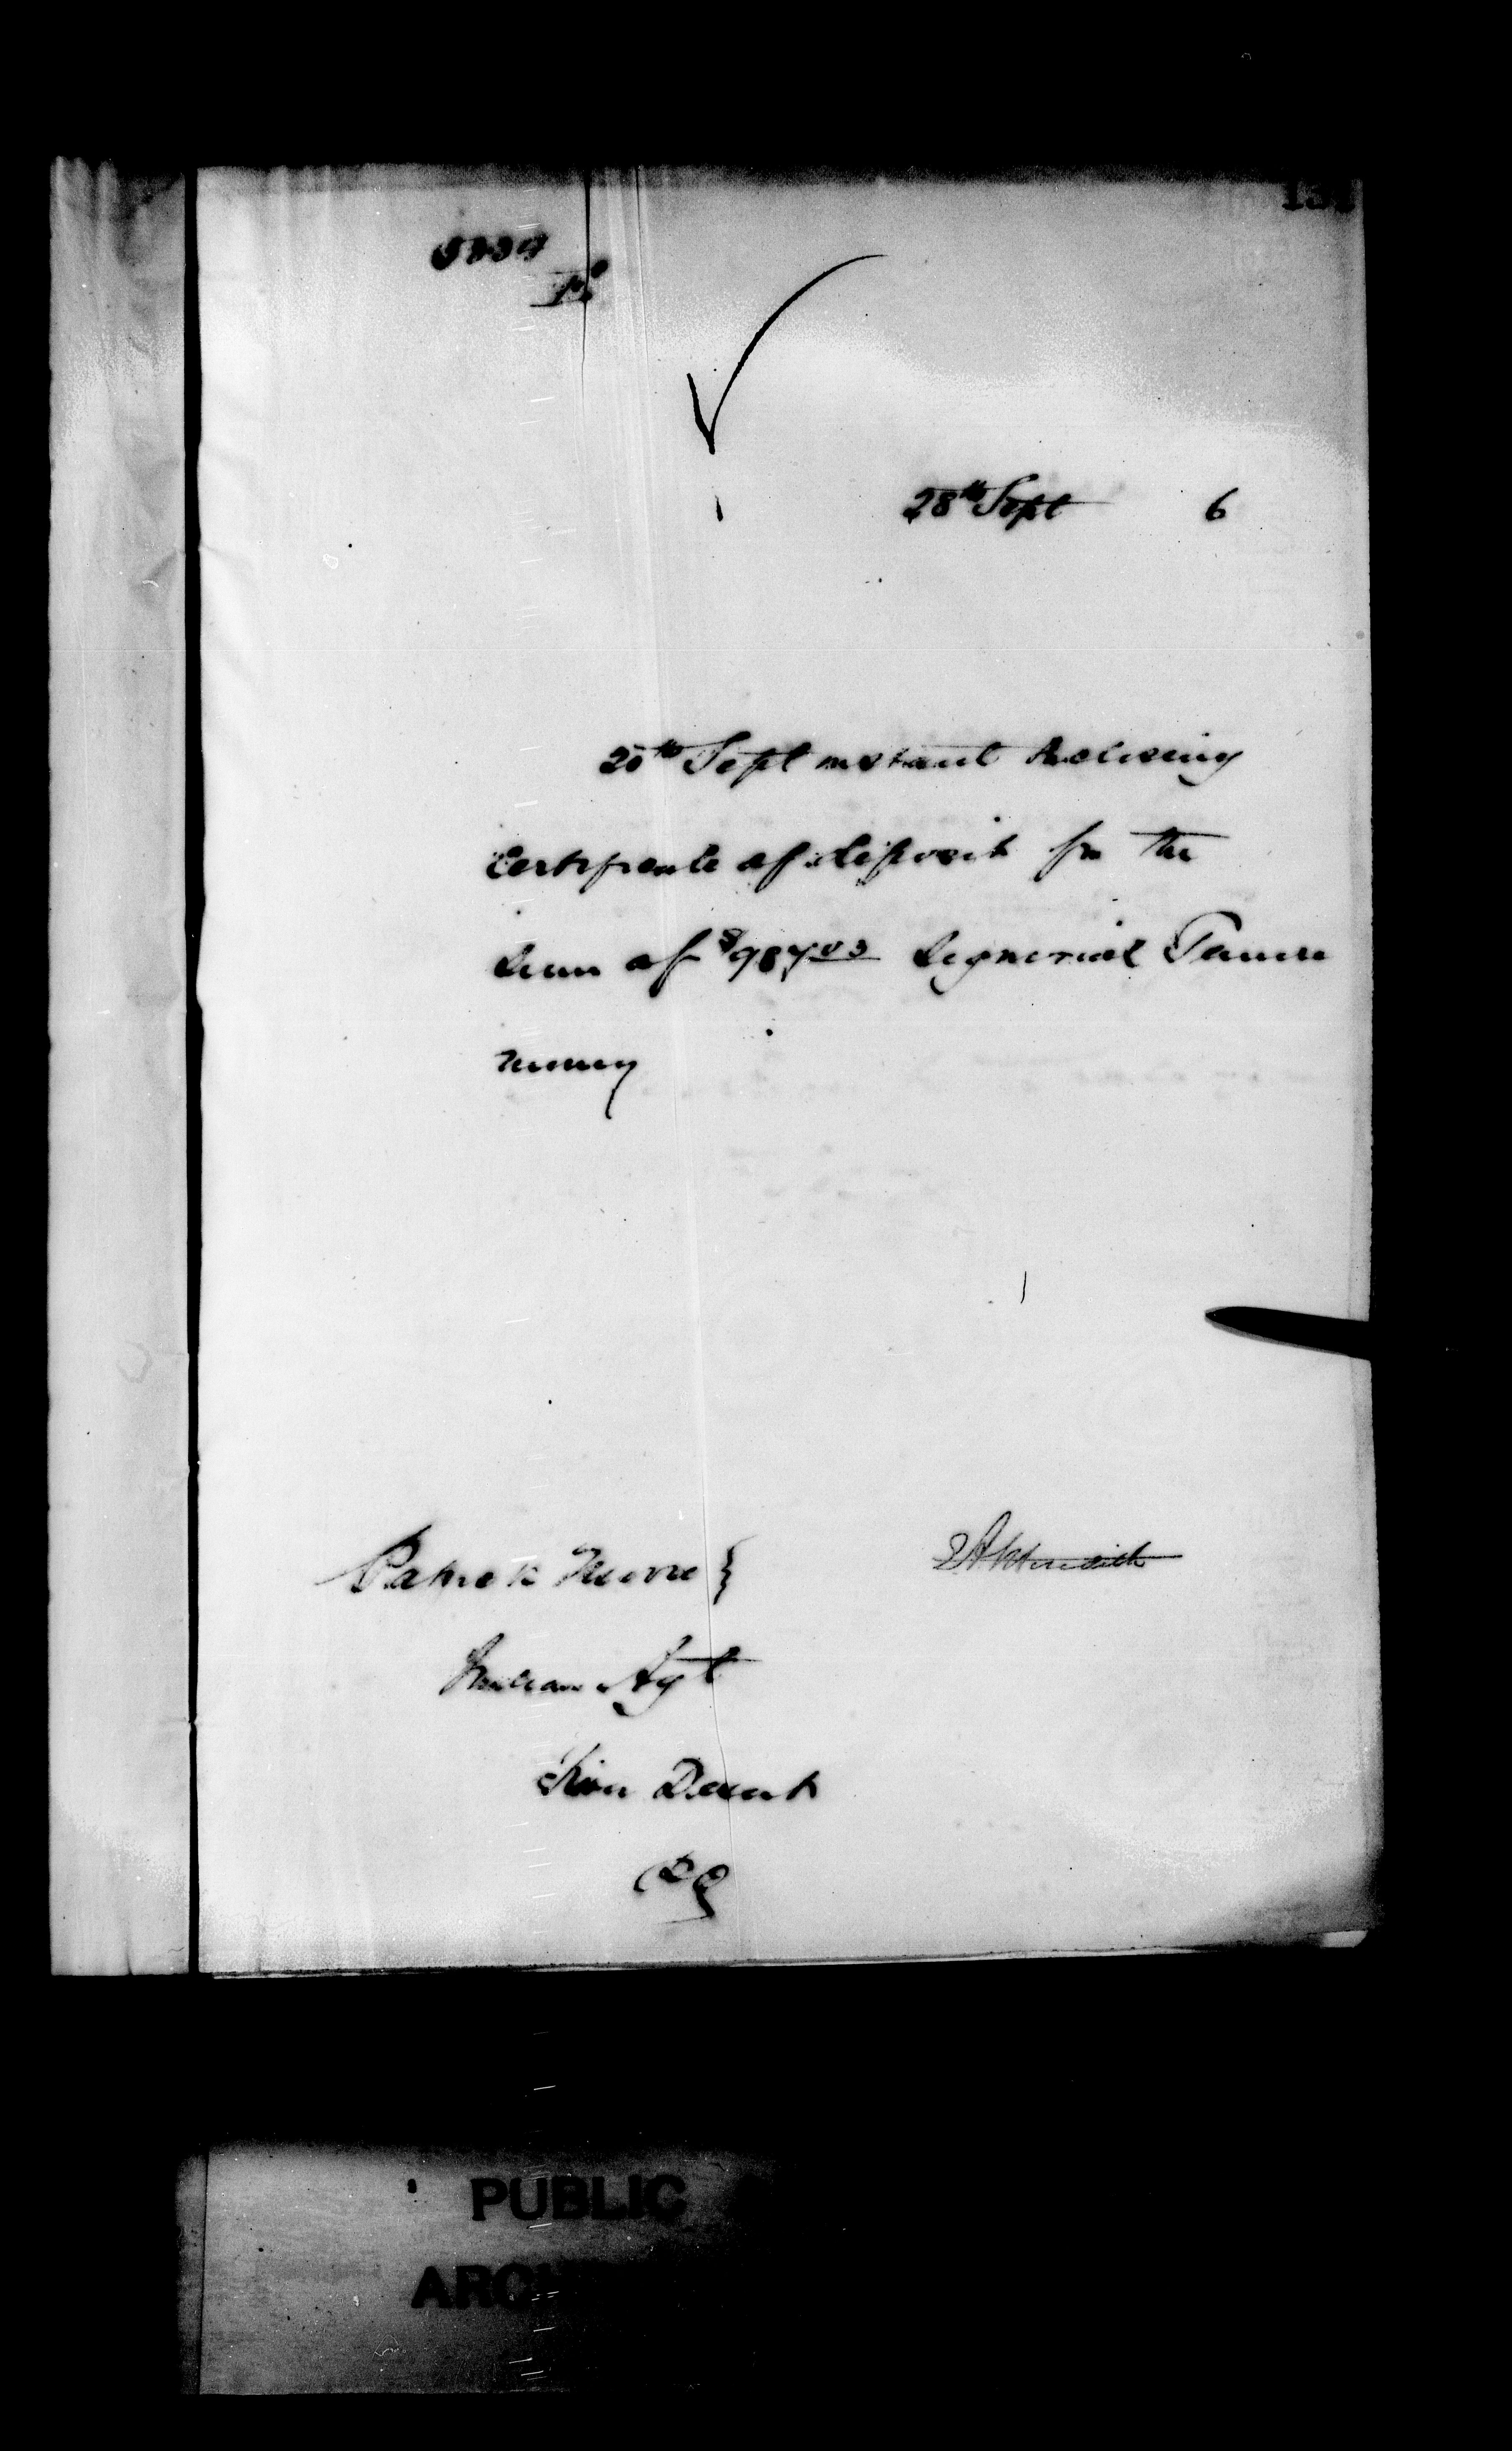 28th Sept 6
20th Sept instant Inclosing
Certificate of deposit for the
Sum of $987.03 Seignorial Tenure
money
Patrick Moore }
Indian Agt
River Desert
P Q
PUBLIC
ARCH